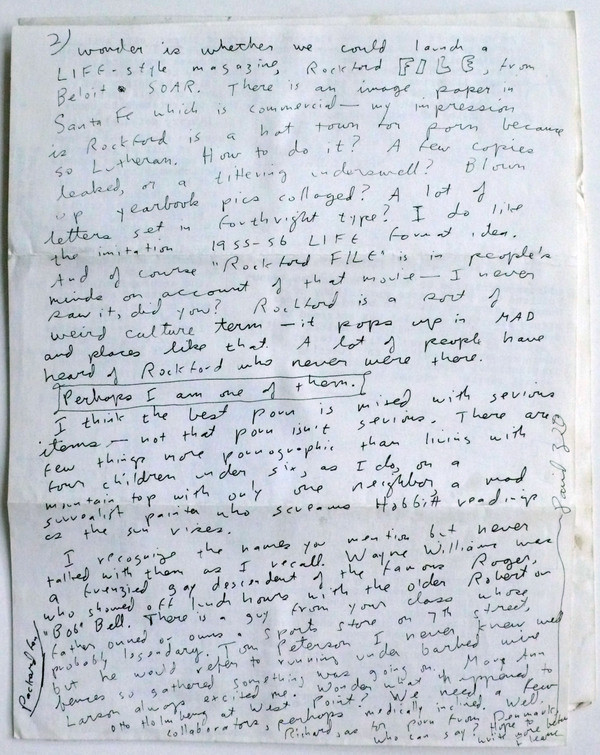 2) wonder is whether we could launch a
LIFE-style magazine, Rockford FILE, from
Beloit SOAR. There is an image paper in
Santa Fe which is commercial — my impression
is Rockford is a hot town for porn because
so Lutheran. How to do it? A few copies
leaked, or a tittering underswell? Blown
up yearbook pics collaged? A lot of
letters set in forthright type? I do like
the imitation 1955-56 LIFE format idea.
And of course "Rockford FILE" is in people's
minds on account of that movie — I never
saw it, did you? Rockford is a sort of
weird culture term — it pops up in MAD
and places like that. A lot of people have
heard of Rockford who never were there.
Perhaps I am one of them.
I think the best porn is mixed with serious
items — not that porn isn't serious. There are
few things more pornographic than living with
four children under six, as I do, on a
mountain top with only one neighbor, a mad
surrealist painter who screams Hobbit readings
as the sun rises.
I recognize the names you mention but never
talked with them as I recall. Wayne Williams was
a frenzied gay descendent of the famous Roger,
who showed off lunch hours with the older Robert on
"Bob" Bell. There is a guy from your class whose
father owned or owns a sports store on 7th street,
probably legendary. Tom Peterson I never knew well
but he would refer to running under barbed wire
fences so gathered something was going on. Mary Ann
Larson always excited me. Wonder what happened to
Otto Holmberg at West Point? We need a few
collaborators, perhaps medically inclined. Well,
Richard, as for porn from Denmark,
who can say? Hope to
write more before
I leave